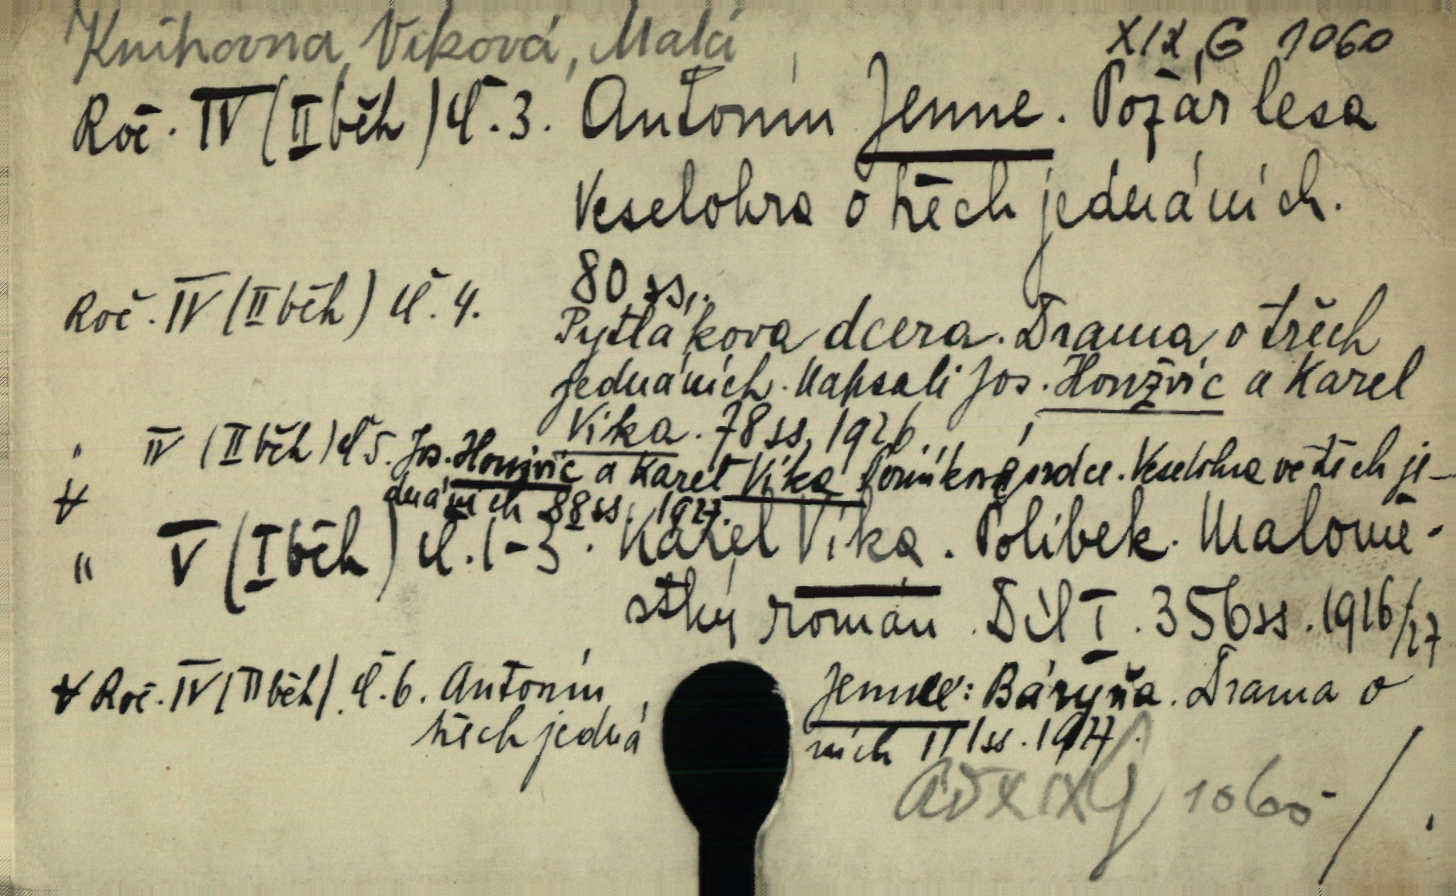 Knihovna Víková, Malá XIX G 1060
Roč. IV (II běh) č. 3. Antonín Jenne. Požár lesa
Veselohra o třech jednáních.
80 ss.
Roč. IV (II běh) č. 4. Pytlákova dcera. Drama o třech
jednáních. Napsali Jos. Honzvic a Karel
Vika. 78 ss, 1926.
" IV (II běh) č 5. Jos. Honzvic a Karel Vika srdce. Veselohra ve třech je-
dnáních 88 ss. 1927.
" V (I běh) č. 1-3. Karel Vika. Polibek. Malomě-
stský román. Díl I. 356 ss. 1916/27
Roč. IV (II běh) č. 6. Antonín Jenne: Báryňa. Drama o
třech jednáních 111 ss. 1927.
XIX G 1060